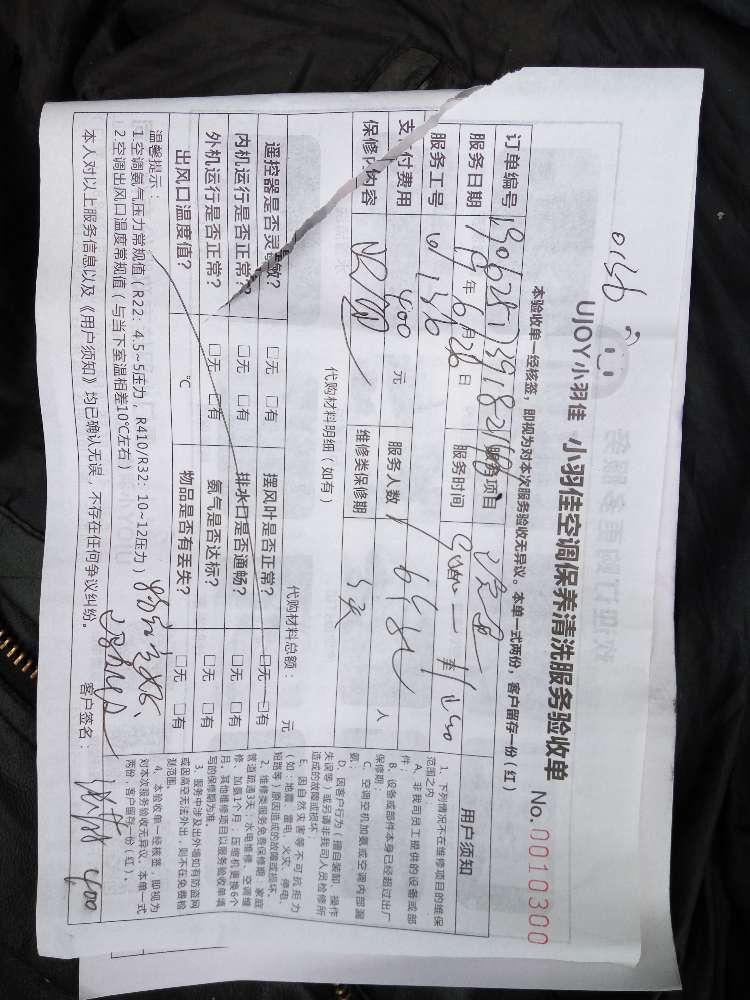 0136
UJOY小羽佳 小羽佳空调保养清洗服务验收单 No.0010300
本验收单一经核签，即视为对本次服务验收无异议。本单一式两份，客户留存一份(红)
订单编号 服务项目
服务日期 19年6月28日 服务时间
服务工号 0136
支付费用 400 元 服务人数 1 人
保修内容 维修类保修期 3天
代购材料明细（如有） 代购材料总额： 元
遥控器是否灵敏？ □无 □有 摆风叶是否正常？ □无 □有
内机运行是否正常？ □无 □有 排水口是否通畅？ □无 □有
外机运行是否正常？ □无 □有 氨气是否达标？ □无 □有
出风口温度值？ ℃ 物品是否有丢失？ □无 □有
温馨提示：
1.空调氨气压力常规值（R22：4.5~5压力，R410/R32：10~12压力）
2.空调出风口温度常规值（与当下室温相差10℃左右）
本人对以上服务信息以及《用户须知》均已确认无误，不存在任何争议纠纷。 客户签名： 400
用户须知
1、下列情况不在维修项目的维保
范围之内：
A、非我司员工提供的设备或部
件；
B、设备或部件本身已经超过出厂
保修期；
C、空调空机加氨或空调内部漏
氨；
D、因客户行为（擅自装卸、操作
失误等）或另请非我司人员检修所
造成的故障或损坏；
E、因自然灾害等不可抗拒力
（如：地震、雷电、火灾、停电、
短路等）原因造成的故障或损坏。
2、维修类服务免费保修期：家庭
管道疏通3天；水电维修、空调维
修、加氨1个月；压缩机更换6个
月；其他维修项目以服务验收单填
写的保修期为准。
3、服务中涉及出外墙如有防盗网
或因高空无法外出，则不在免费检
测范围。
4、本验收单一经核签，即视为
对本次服务验收无异议。本单一式
两份，客户留存一份（红）。